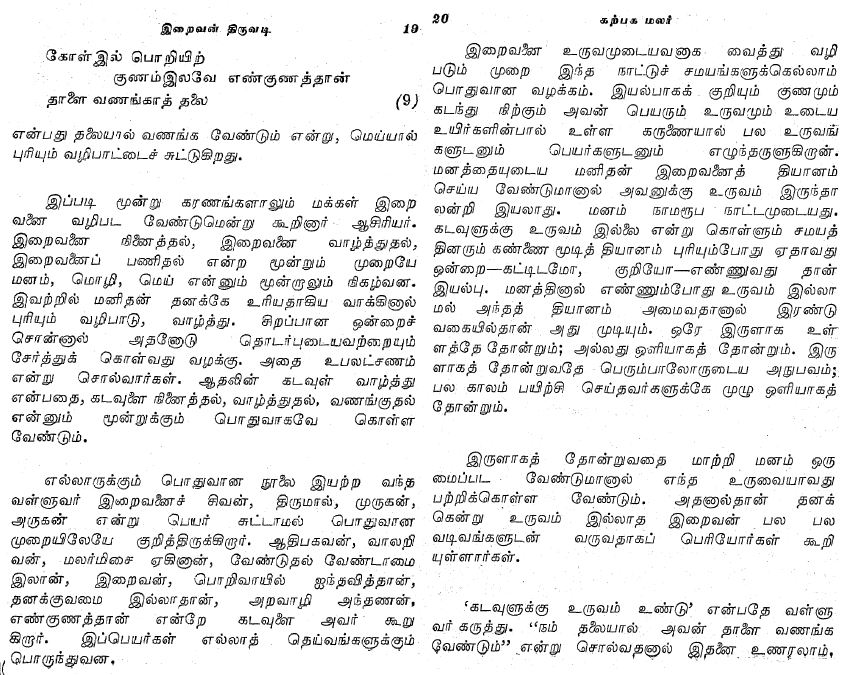 இறைவன் திருவடி 19
கோள்இல் பொறியிற்
குணம்இலவே எண்குணத்தான்
தாளை வணங்காத் தலை (9)
என்பது தலையால் வணங்க வேண்டும் என்று, மெய்யால்
புரியும் வழிபாட்டைச் சுட்டுகிறது.
இப்படி மூன்று கரணங்களாலும் மக்கள் இறை
வனை வழிபட வேண்டுமென்று கூறினார் ஆசிரியர்.
இறைவனை நினைத்தல், இறைவனை வாழ்த்துதல்,
இறைவனைப் பணிதல் என்ற மூன்றும் முறையே
மனம், மொழி, மெய் என்னும் மூன்றாலும் நிகழ்வன.
இவற்றில் மனிதன் தனக்கே உரியதாகிய வாக்கினால்
புரியும் வழிபாடு, வாழ்த்து. சிறப்பான ஒன்றைச்
சொன்னால் அதனோடு தொடர்புடையவற்றையும்
சேர்த்துக் கொள்வது வழக்கு. அதை உபலட்சணம்
என்று சொல்வார்கள். ஆதலின் கடவுள் வாழ்த்து
என்பதை, கடவுளை நினைத்தல், வாழ்த்துதல், வணங்குதல்
என்னும் மூன்றுக்கும் பொதுவாகவே கொள்ள
வேண்டும்.
எல்லாருக்கும் பொதுவான நூலை இயற்ற வந்த
வள்ளுவர் இறைவனைச் சிவன், திருமால், முருகன்,
அருகன் என்று பெயர் சுட்டாமல் பொதுவான
முறையிலேயே குறித்திருக்கிறார். ஆதிபகவன், வாலறி
வன், மலர்மிசை ஏகினான், வேண்டுதல் வேண்டாமை
இலான், இறைவன், பொறிவாயில் ஐந்தவித்தான்,
தனக்குவமை இல்லாதான், அறவாழி அந்தணன்,
எண்குணத்தான் என்றே கடவுளை அவர் கூறு
கிறார். இப்பெயர்கள் எல்லாத் தெய்வங்களுக்கும்
பொருந்துவன.
20 கற்பக மலர்
இறைவனை உருவமுடையவனாக வைத்து வழி
படும் முறை இந்த நாட்டுச் சமயங்களுக்கெல்லாம்
பொதுவான வழக்கம். இயல்பாகக் குறியும் குணமும்
கடந்து நிற்கும் அவன் பெயரும் உருவமும் உடைய
உயிர்களின்பால் உள்ள கருணையால் பல உருவங்
களுடனும் பெயர்களுடனும் எழுந்தருளுகிறான்.
மனத்தையுடைய மனிதன் இறைவனைத் தியானம்
செய்ய வேண்டுமானால் அவனுக்கு உருவம் இருந்தா
லன்றி இயலாது. மனம் நாமரூப நாட்டமுடையது.
கடவுளுக்கு உருவம் இல்லை என்று கொள்ளும் சமயத்
தினரும் கண்ணை மூடித் தியானம் புரியும்போது ஏதாவது
ஒன்றை—கட்டிடமோ, குறியோ—எண்ணுவது தான்
இயல்பு. மனத்தினால் எண்ணும்போது உருவம் இல்லா
மல் அந்தத் தியானம் அமைவதானால் இரண்டு
வகையில்தான் அது முடியும். ஒரே இருளாக உள்
ளத்தே தோன்றும்; அல்லது ஒளியாகத் தோன்றும். இரு
ளாகத் தோன்றுவதே பெரும்பாலோருடைய அநுபவம்;
பல காலம் பயிற்சி செய்தவர்களுக்கே முழு ஒளியாகத்
தோன்றும்.
இருளாகத் தோன்றுவதை மாற்றி மனம் ஒரு
மைப்பட வேண்டுமானால் எந்த உருவையாவது
பற்றிக்கொள்ள வேண்டும். அதனால்தான் தனக்
கென்று உருவம் இல்லாத இறைவன் பல பல
வடிவங்களுடன் வருவதாகப் பெரியோர்கள் கூறி
யுள்ளார்கள்.
‘கடவுளுக்கு உருவம் உண்டு’ என்பதே வள்ளு
வர் கருத்து. “நம் தலையால் அவன் தாளை வணங்க
வேண்டும்” என்று சொல்வதனால் இதனை உணரலாம்.